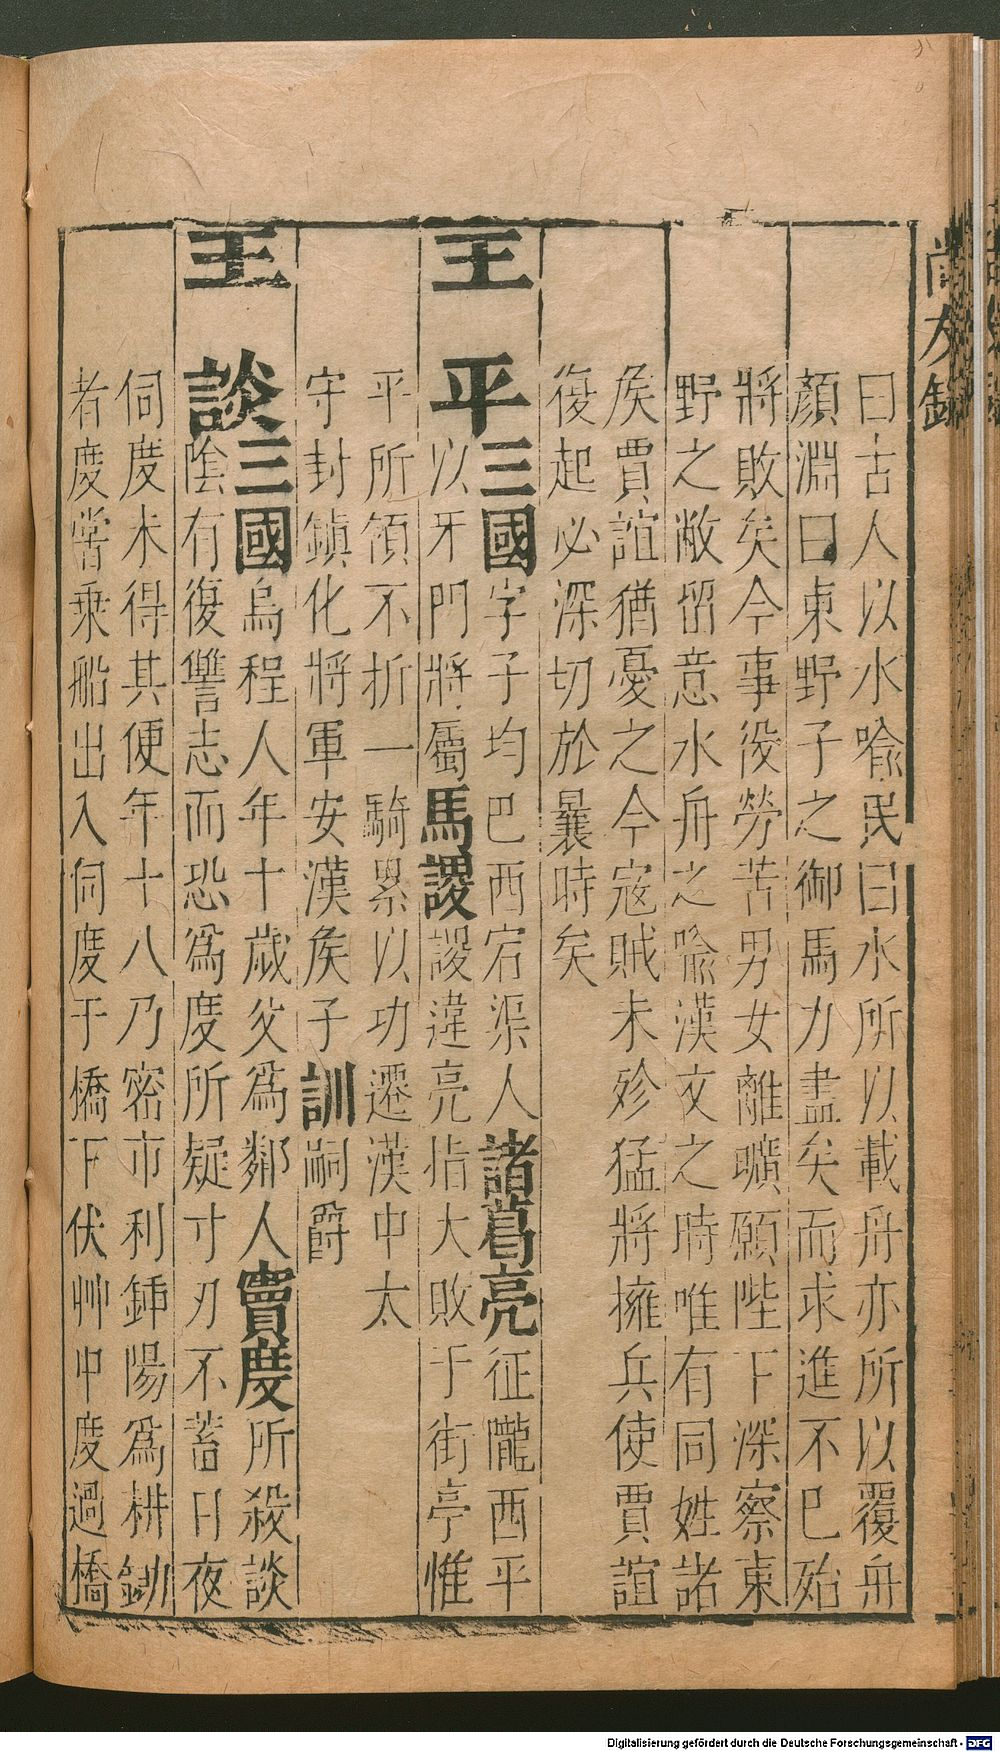 尚友錄
曰古人以水喩民曰水所以載舟亦所以覆舟
顏淵曰東野子之御馬力盡矣而求進不巳殆
將敗矣今事役勞苦男女離曠願陛下深察東
野之敝留意水舟之喩漢文之時唯有同姓諸
矦賈誼猶憂之今寇賊未殄猛將擁兵使賈誼
復起必深切於曩時矣
王平三國字子均巴西宕渠人諸葛亮征隴西平
以牙門將屬馬謖謖違亮指大敗于街亭惟
平所領不折一騎累以功遷漢中太
守封鎮化將軍安漢矦子訓嗣爵
王談三國烏程人年十歲父爲鄰人竇度所殺談
陰有復讐志而恐爲度所疑寸刃不蓄日夜
伺度未得其便年十八乃密市利鍤陽爲耕鋤
者度常乗船出入伺度于橋下伏艸中度過橋
Digitalisierung gefördert durch die Deutsche Forschungsgemeinschaft - DFG